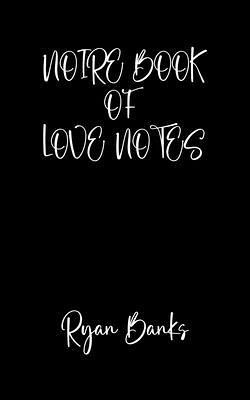 NOIRE BOOK
OF
LOVE NOTES
Ryan Banks